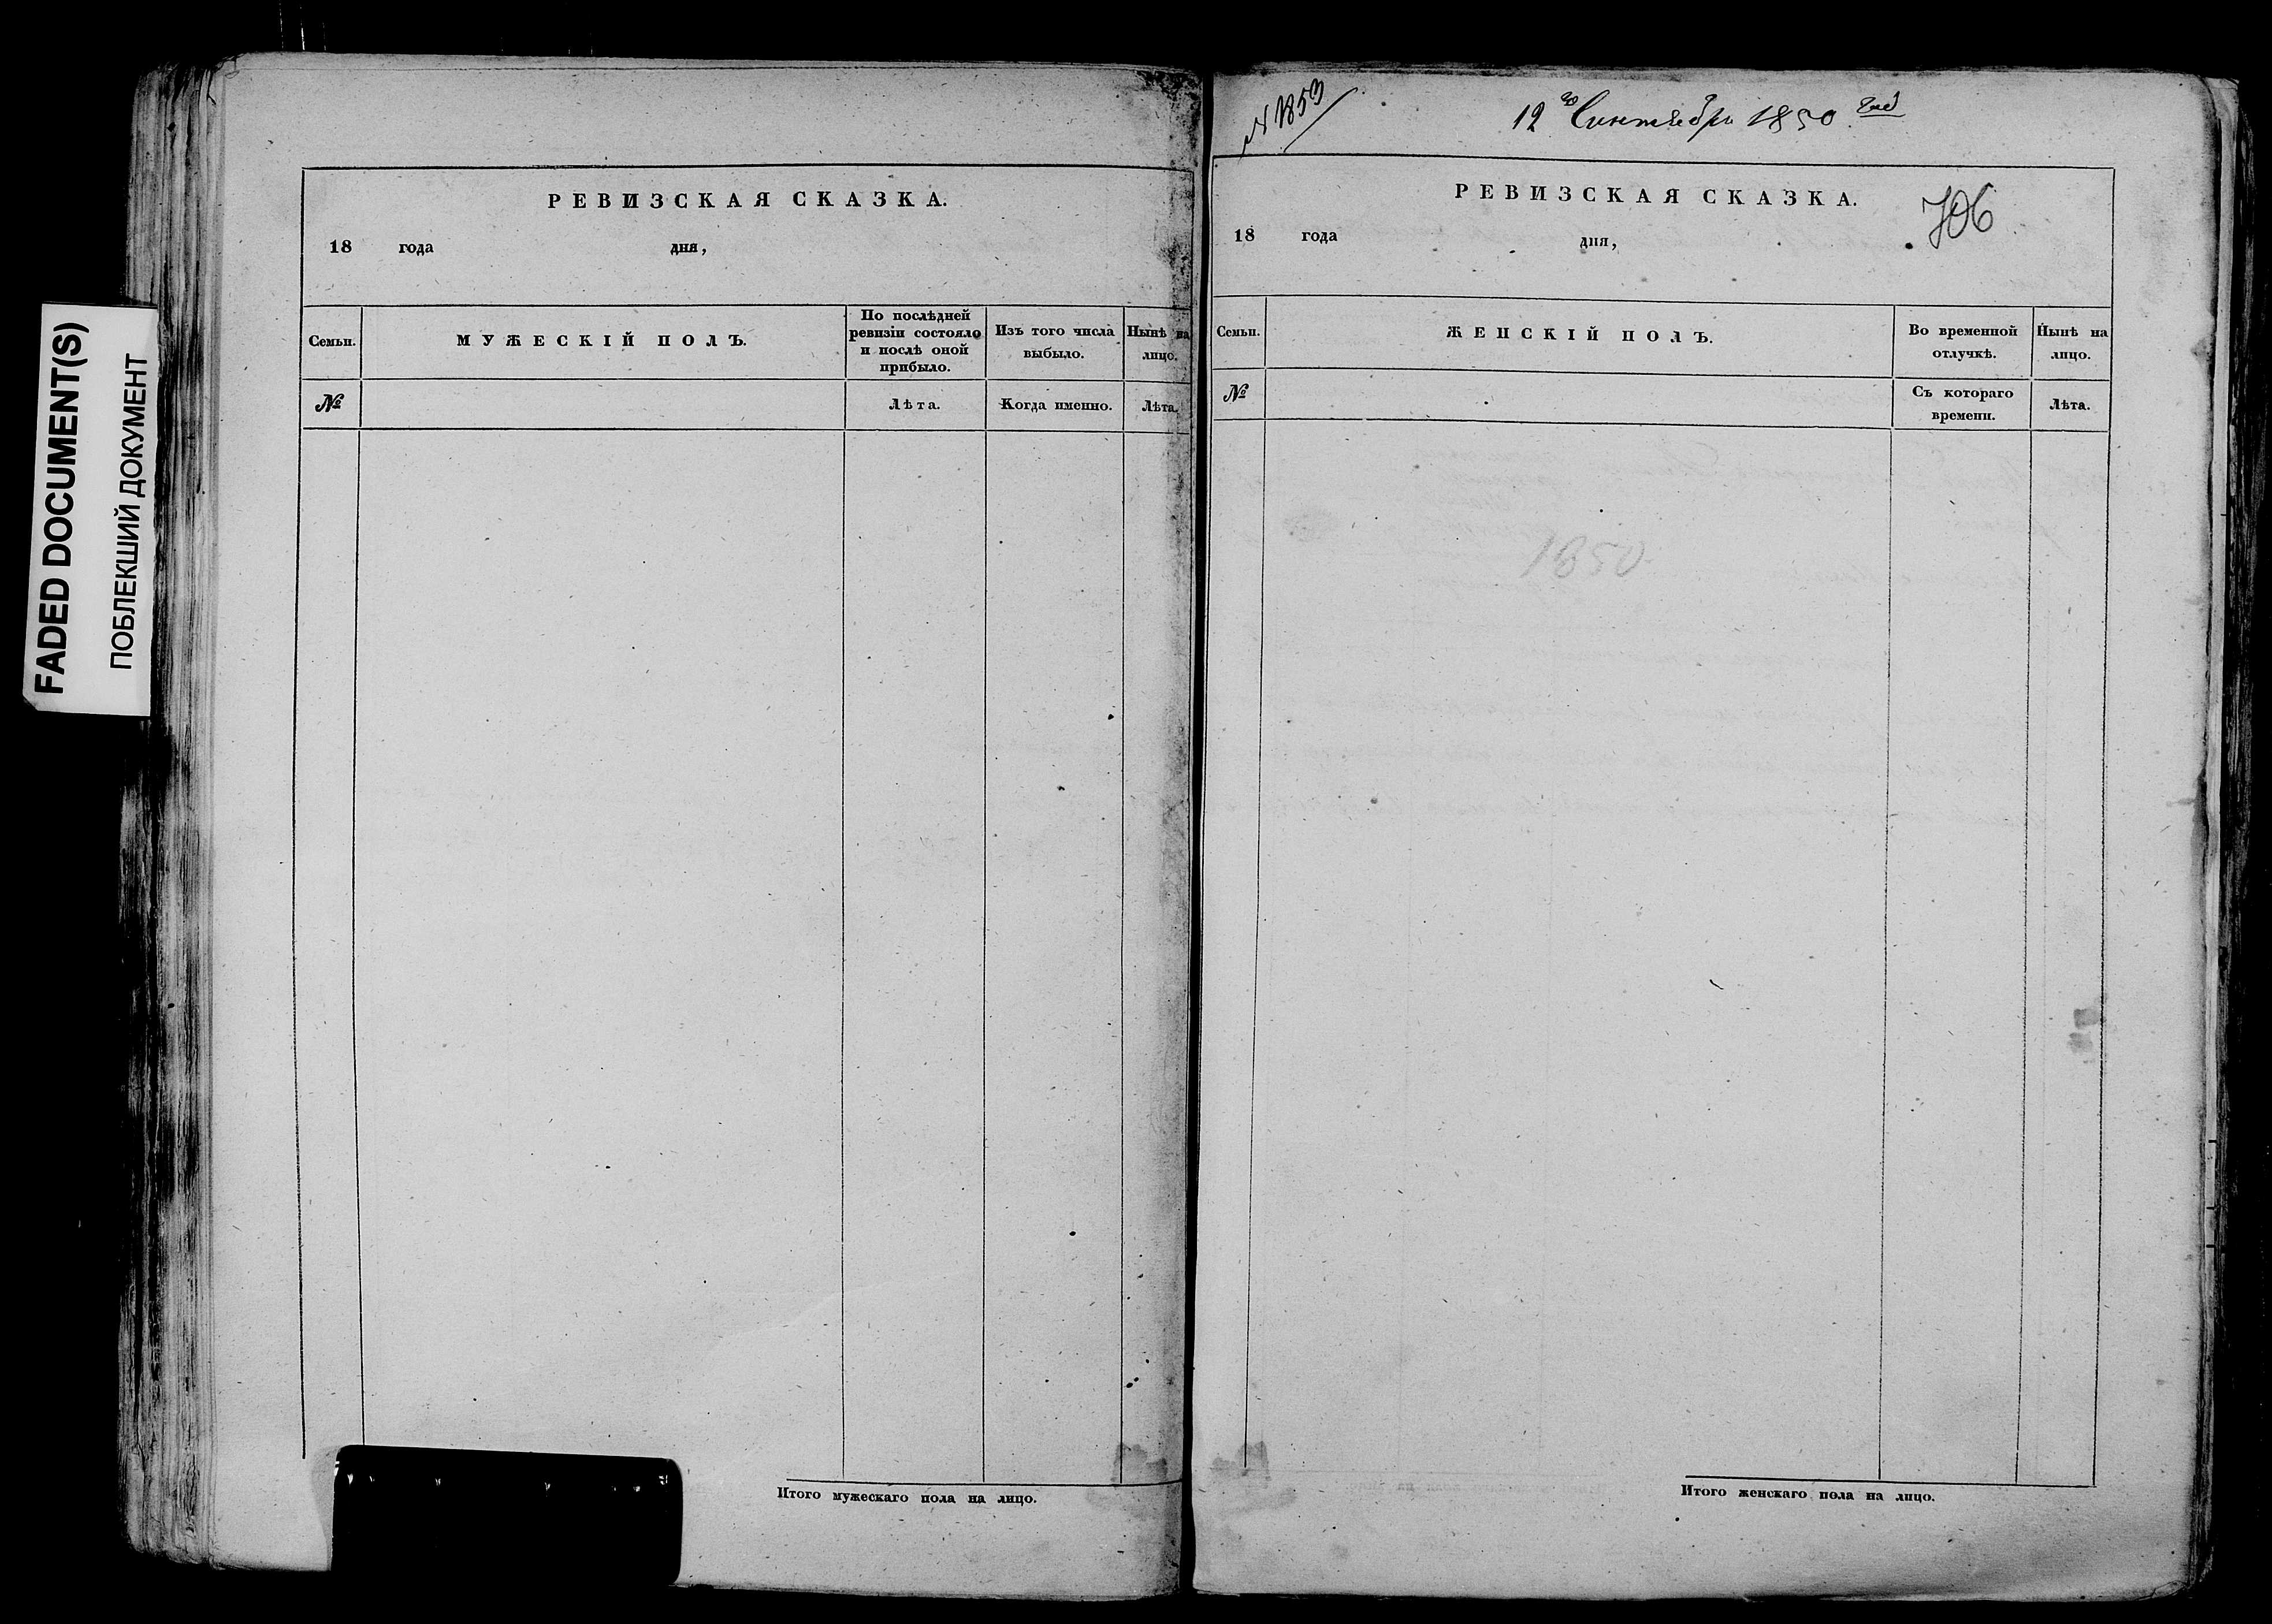 FADED DOCUMENT(S)
ПОБЛЕКШИЙ ДОКУМЕНТ
РЕВИЗСКАЯ СКАЗКА.
18 года дня,
Семьи.
МУЖЕСКІЙ ПОЛЪ.
По послѣдней
ревизіи состояло
и послѣ оной
прибыло.
Изъ того числа
выбыло.
Нынѣ на
лицо.
№
Лѣта.
Когда именно.
Лѣта.
Итого мужескаго пола на лицо.
№ 1853
12го Сентября 1850 год
РЕВИЗСКАЯ СКАЗКА.
706
18 года дня,
Семьи.
ЖЕНСКІЙ ПОЛЪ.
Во временной
отлучкѣ.
Нынѣ на
лицо.
№
Съ котораго
времени.
Лѣта.
1850
Итого женскаго пола на лицо.